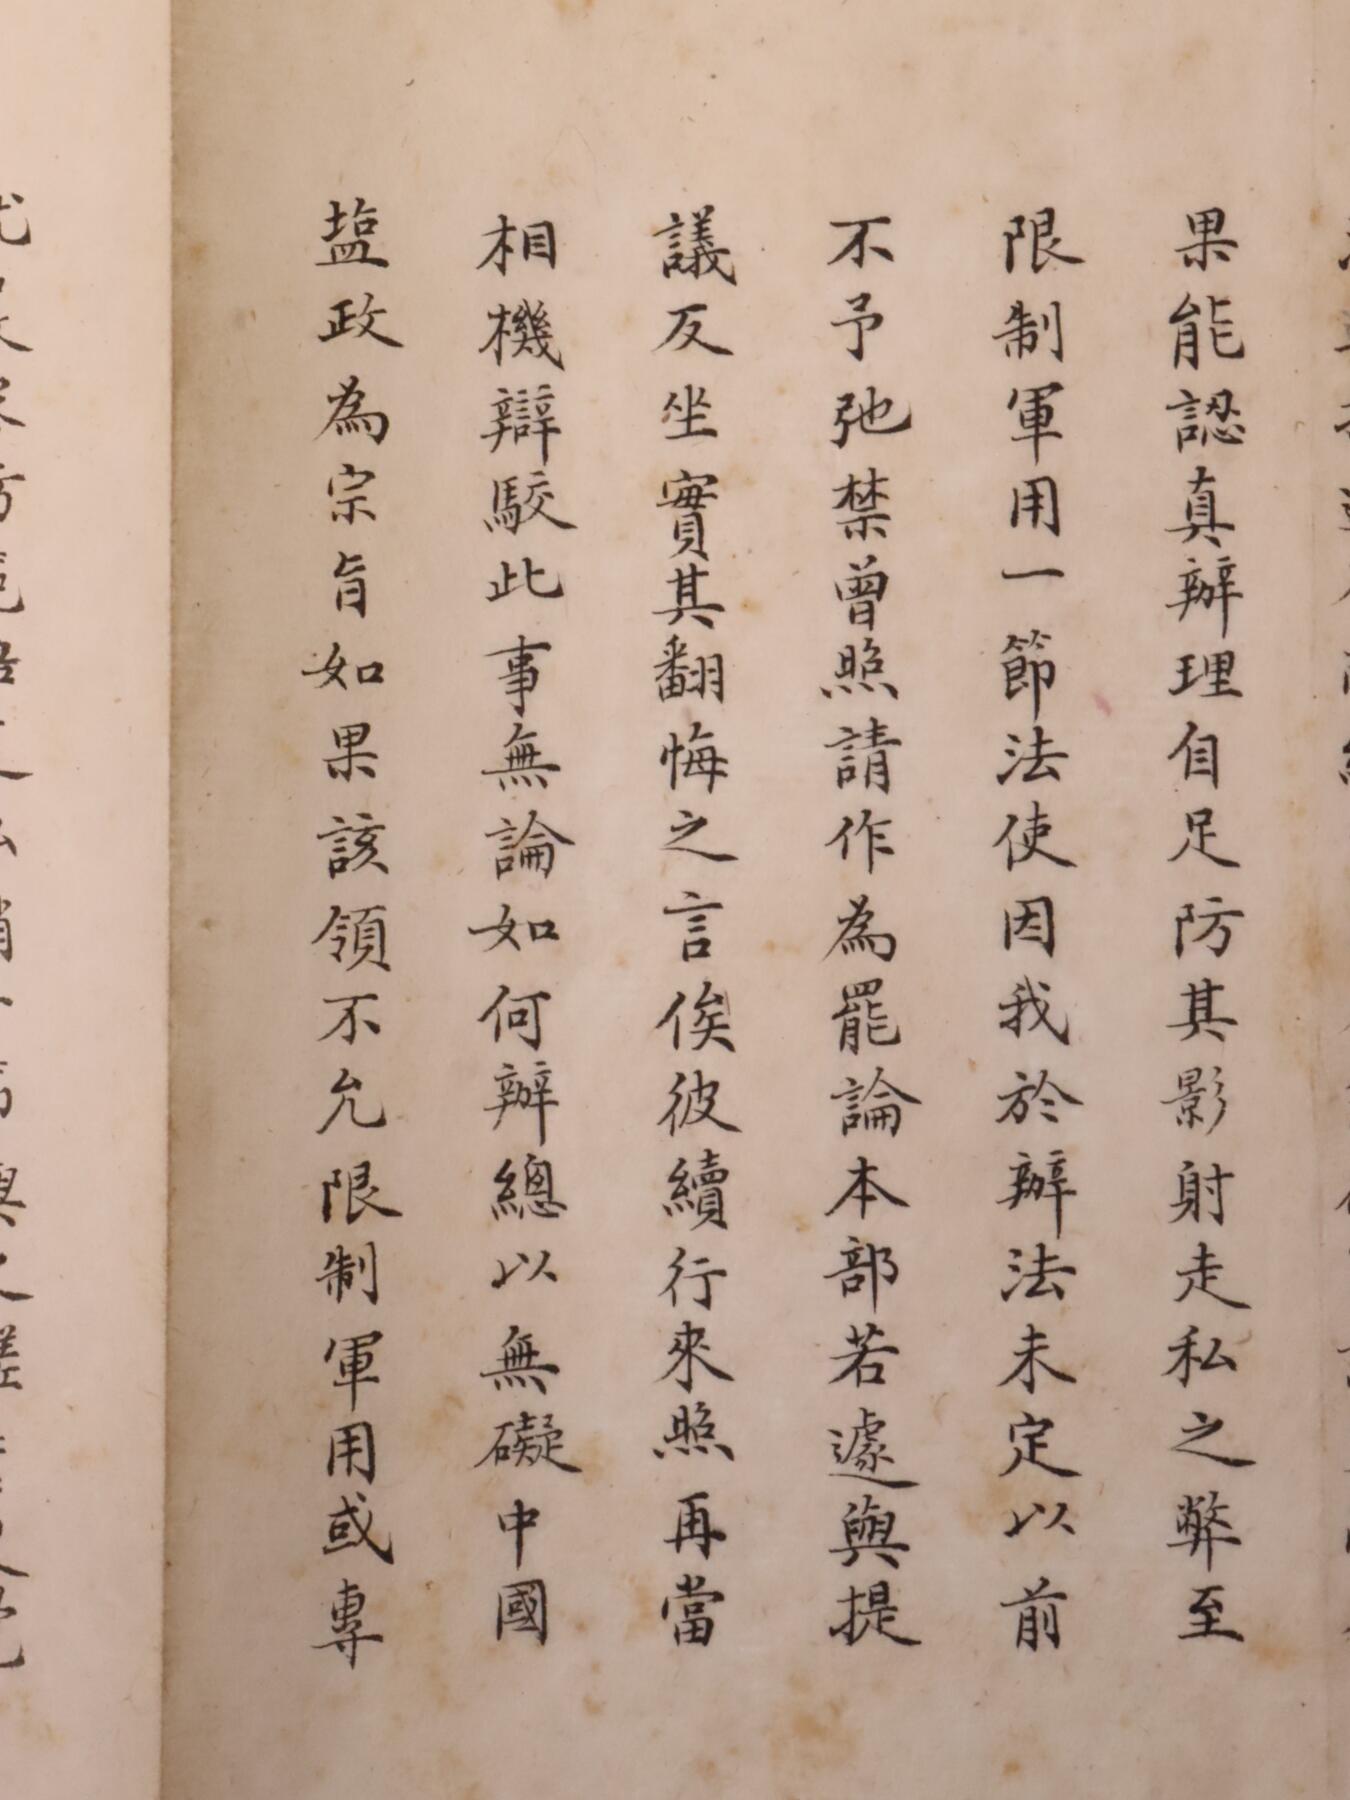 果能認真辦理自足防其影射走私之弊至
限制軍用一節法使因我於辦法未定以前
不予弛禁曾照請作為罷論本部若遽與提
議反坐實其翻悔之言俟彼續行來照再當
相機辯駁此事無論如何辦總以無礙中國
塩政為宗旨如果該領不允限制軍用或專